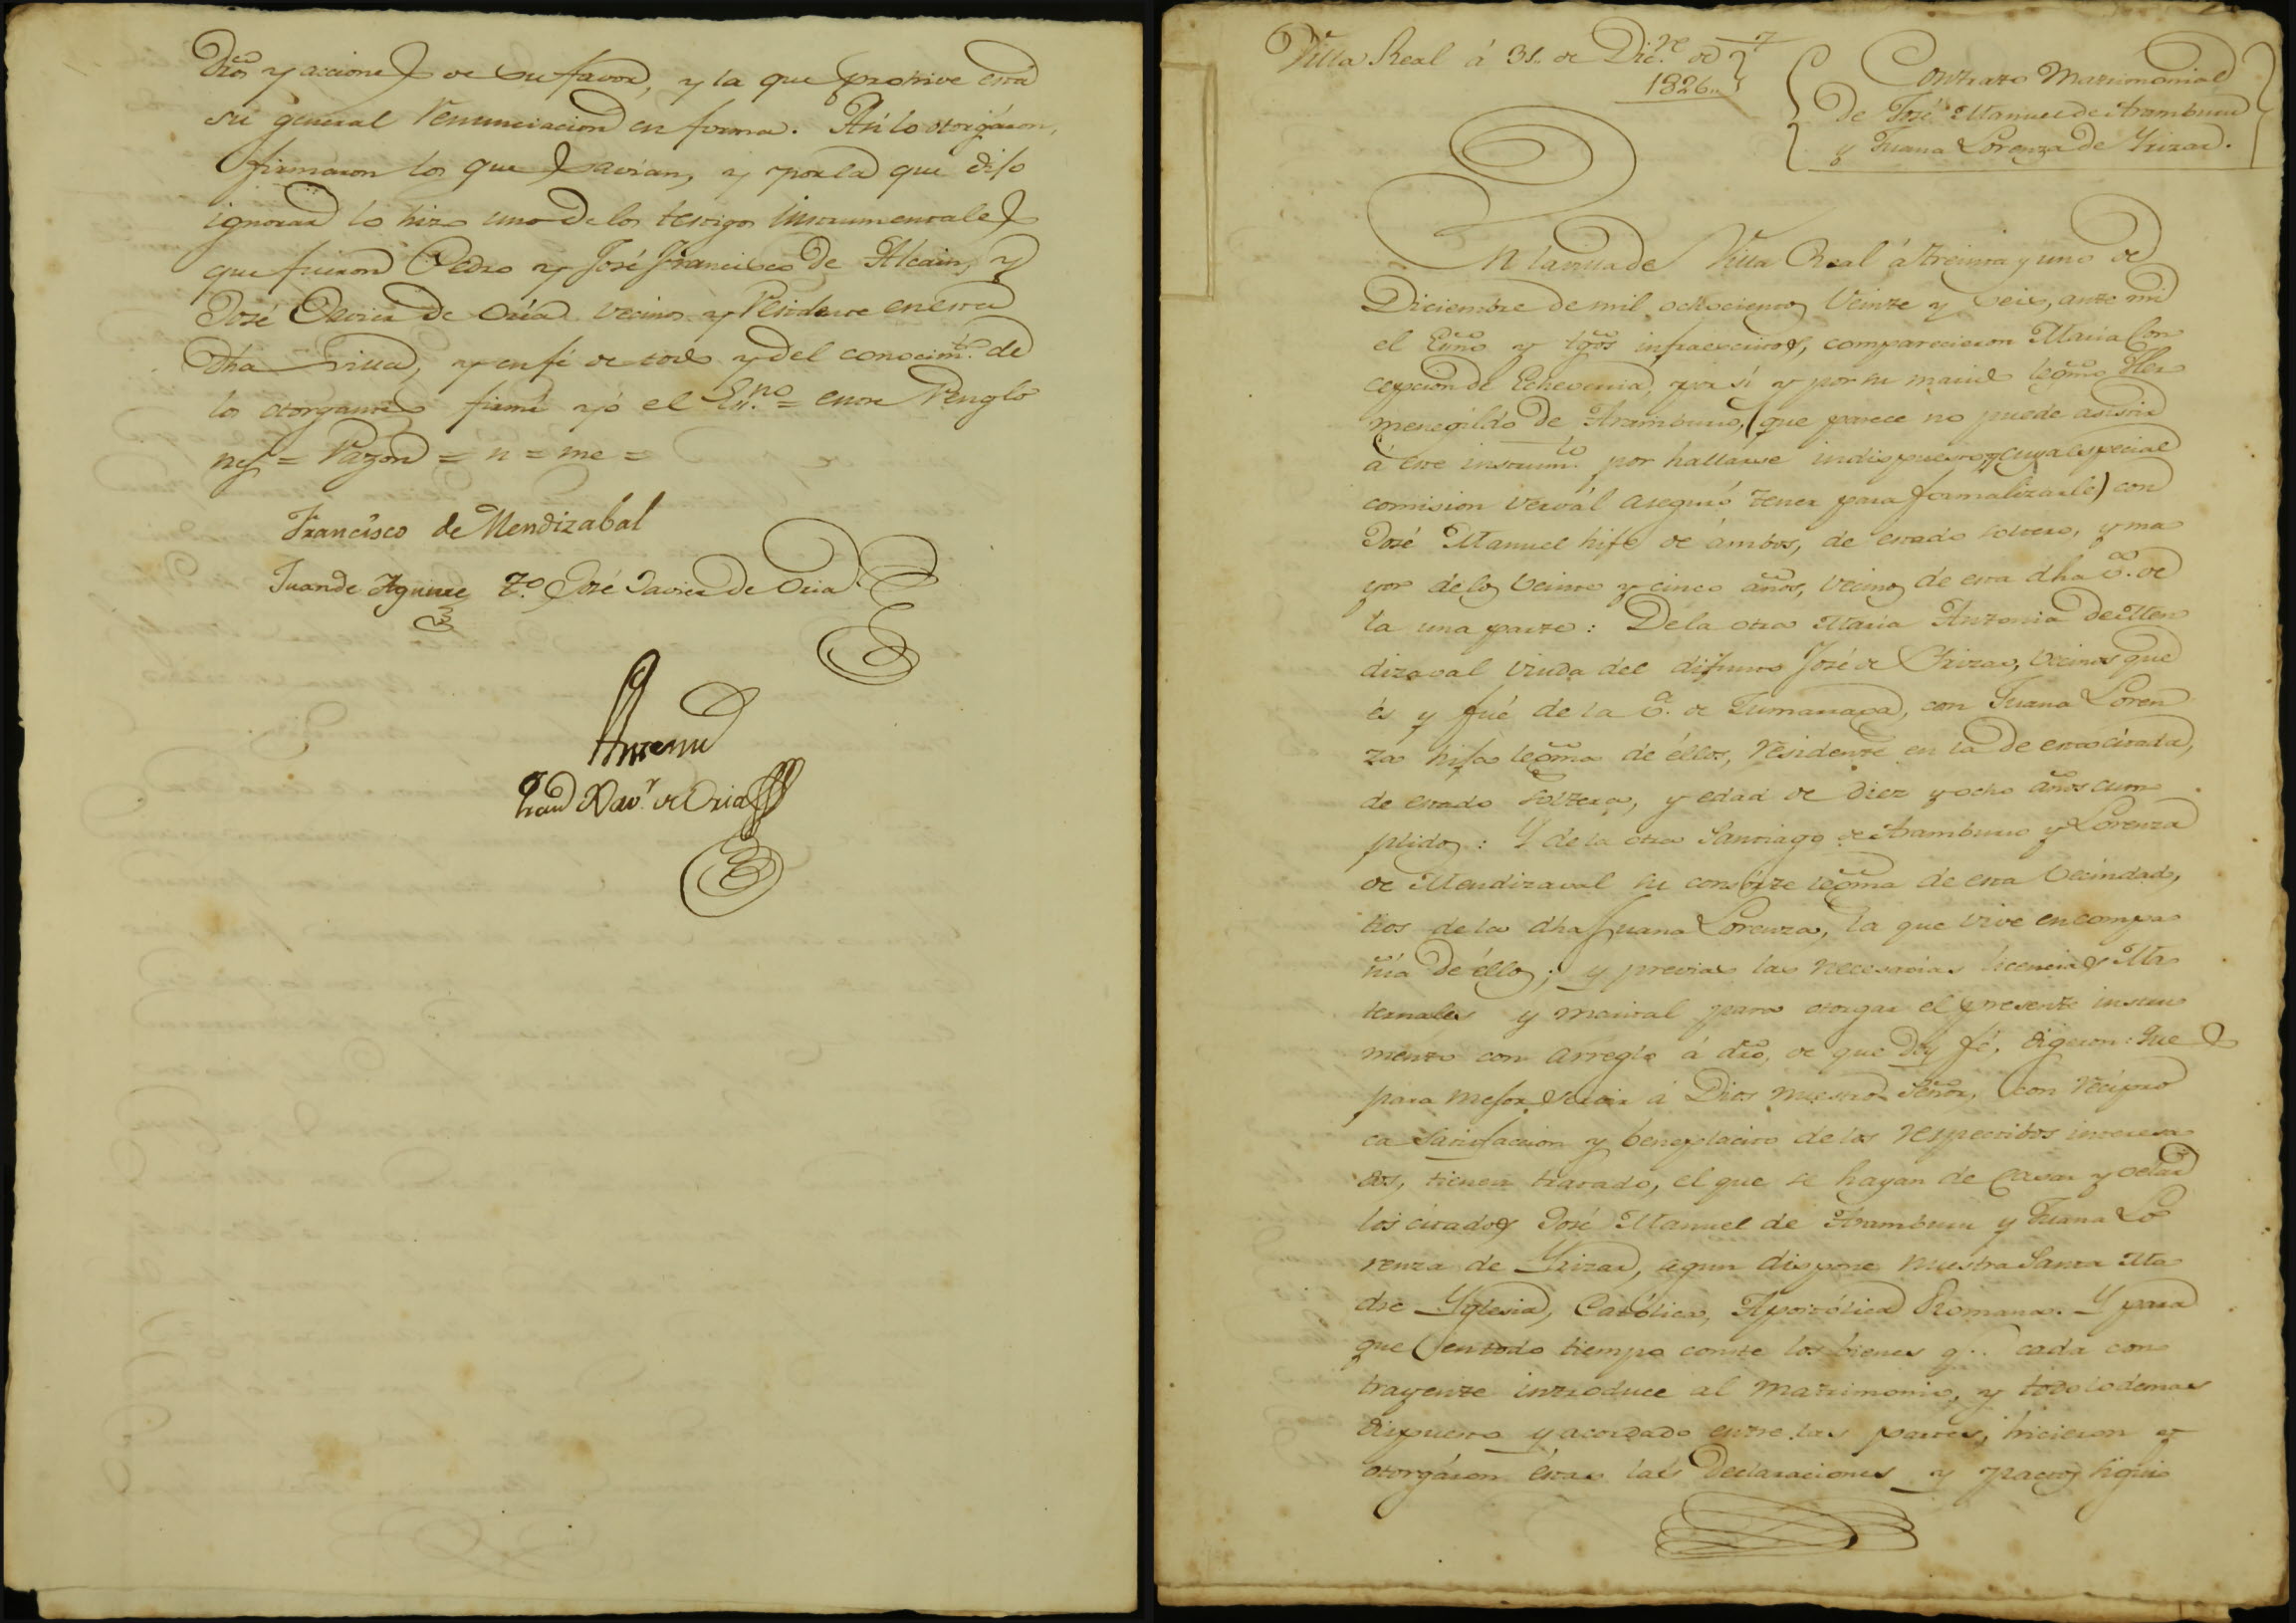 dr̃os y acciones de su favor, y la que prohive esta
su general renunciacion en forma. Asi lo otorgáron,
firmaron los que savian, y por la que dijo
ignorar lo hizo uno de los testigos instrumentales
que fueron Pedro y José Francisco de Alcain, y
José Javier de Oria vecinos y residente en esta
dha villa, y en fé de todo y del conocim.to de
los otorgantes firmé yó el Es.no = entre renglo
nes = razon = n = me =
Francisco de Mendizabal
Juan de Aguirre T.o José Javier de Oria
Ante mi
Xav.r de Oria
Villa Real á 31. de Dic.re de
1826..
7
Contrato Matrimonial
de José Manuel de Aramburu
y Juana Lorenza de Yrizar.
En la villa de Villa Real á treinta y uno de
Diciembre de mil ochocientos veinte y seis, ante mi
el Esño y tgõs infraescritos, comparecieron Maria Con
cepcion de Echeverria, por sí y por su marido legm̃o Her
menegildo de Aramburu, (que parece no puede asistir
á este instrum.to por hallarse indispuesto, y cuya especial
comision vervál aseguró tener para formalizarle) con
José Manuel hijo de ámbos, de estado soltero, y ma
yor de los veinte y cinco años, vecinos de esta dha V.a de
la una parte: De la otra Maria Antonia de Men
dizaval viuda del difunto José de Yrizar, vecinos que
és y fué de la V.a de Zumarraga, con Juana Loren
za hija legm̃a de éllos, residente en la de esta citada,
de estado soltera, y edad de diez y ocho años cum
plidos: Y de la otra Santiago de Aramburu y Lorenza
de Mendizaval su consorte legm̃a de esta vecindad,
tios de la dha Juana Lorenza, la que vive en compa
ñia de éllos; y previas las necesarias licencias Ma
ternales y marital para otorgar el presente instru
mento con arreglo á dr̃o, de que doy fé, digeron: Que
para mejor servir á Dios nuestro Señor, con recipro
ca satisfaccion y beneplacito de los respectibos interesa
dos, tienen tratado, el que se hayan de casar y velar
los citados José Manuel de Aramburu y Juana Lo
renza de Yrizar, segun dispone nuestra Santa Ma
dre Yglesia, Católica, Apostólica Romana. Y para
que en todo tiempo conste los bienes q.. cada con
trayente introduce al matrimonio, y todo lo demas
dispuesto y acordado entre las partes, hicieron y
otorgáron éstas las declaraciones y pactos siguie